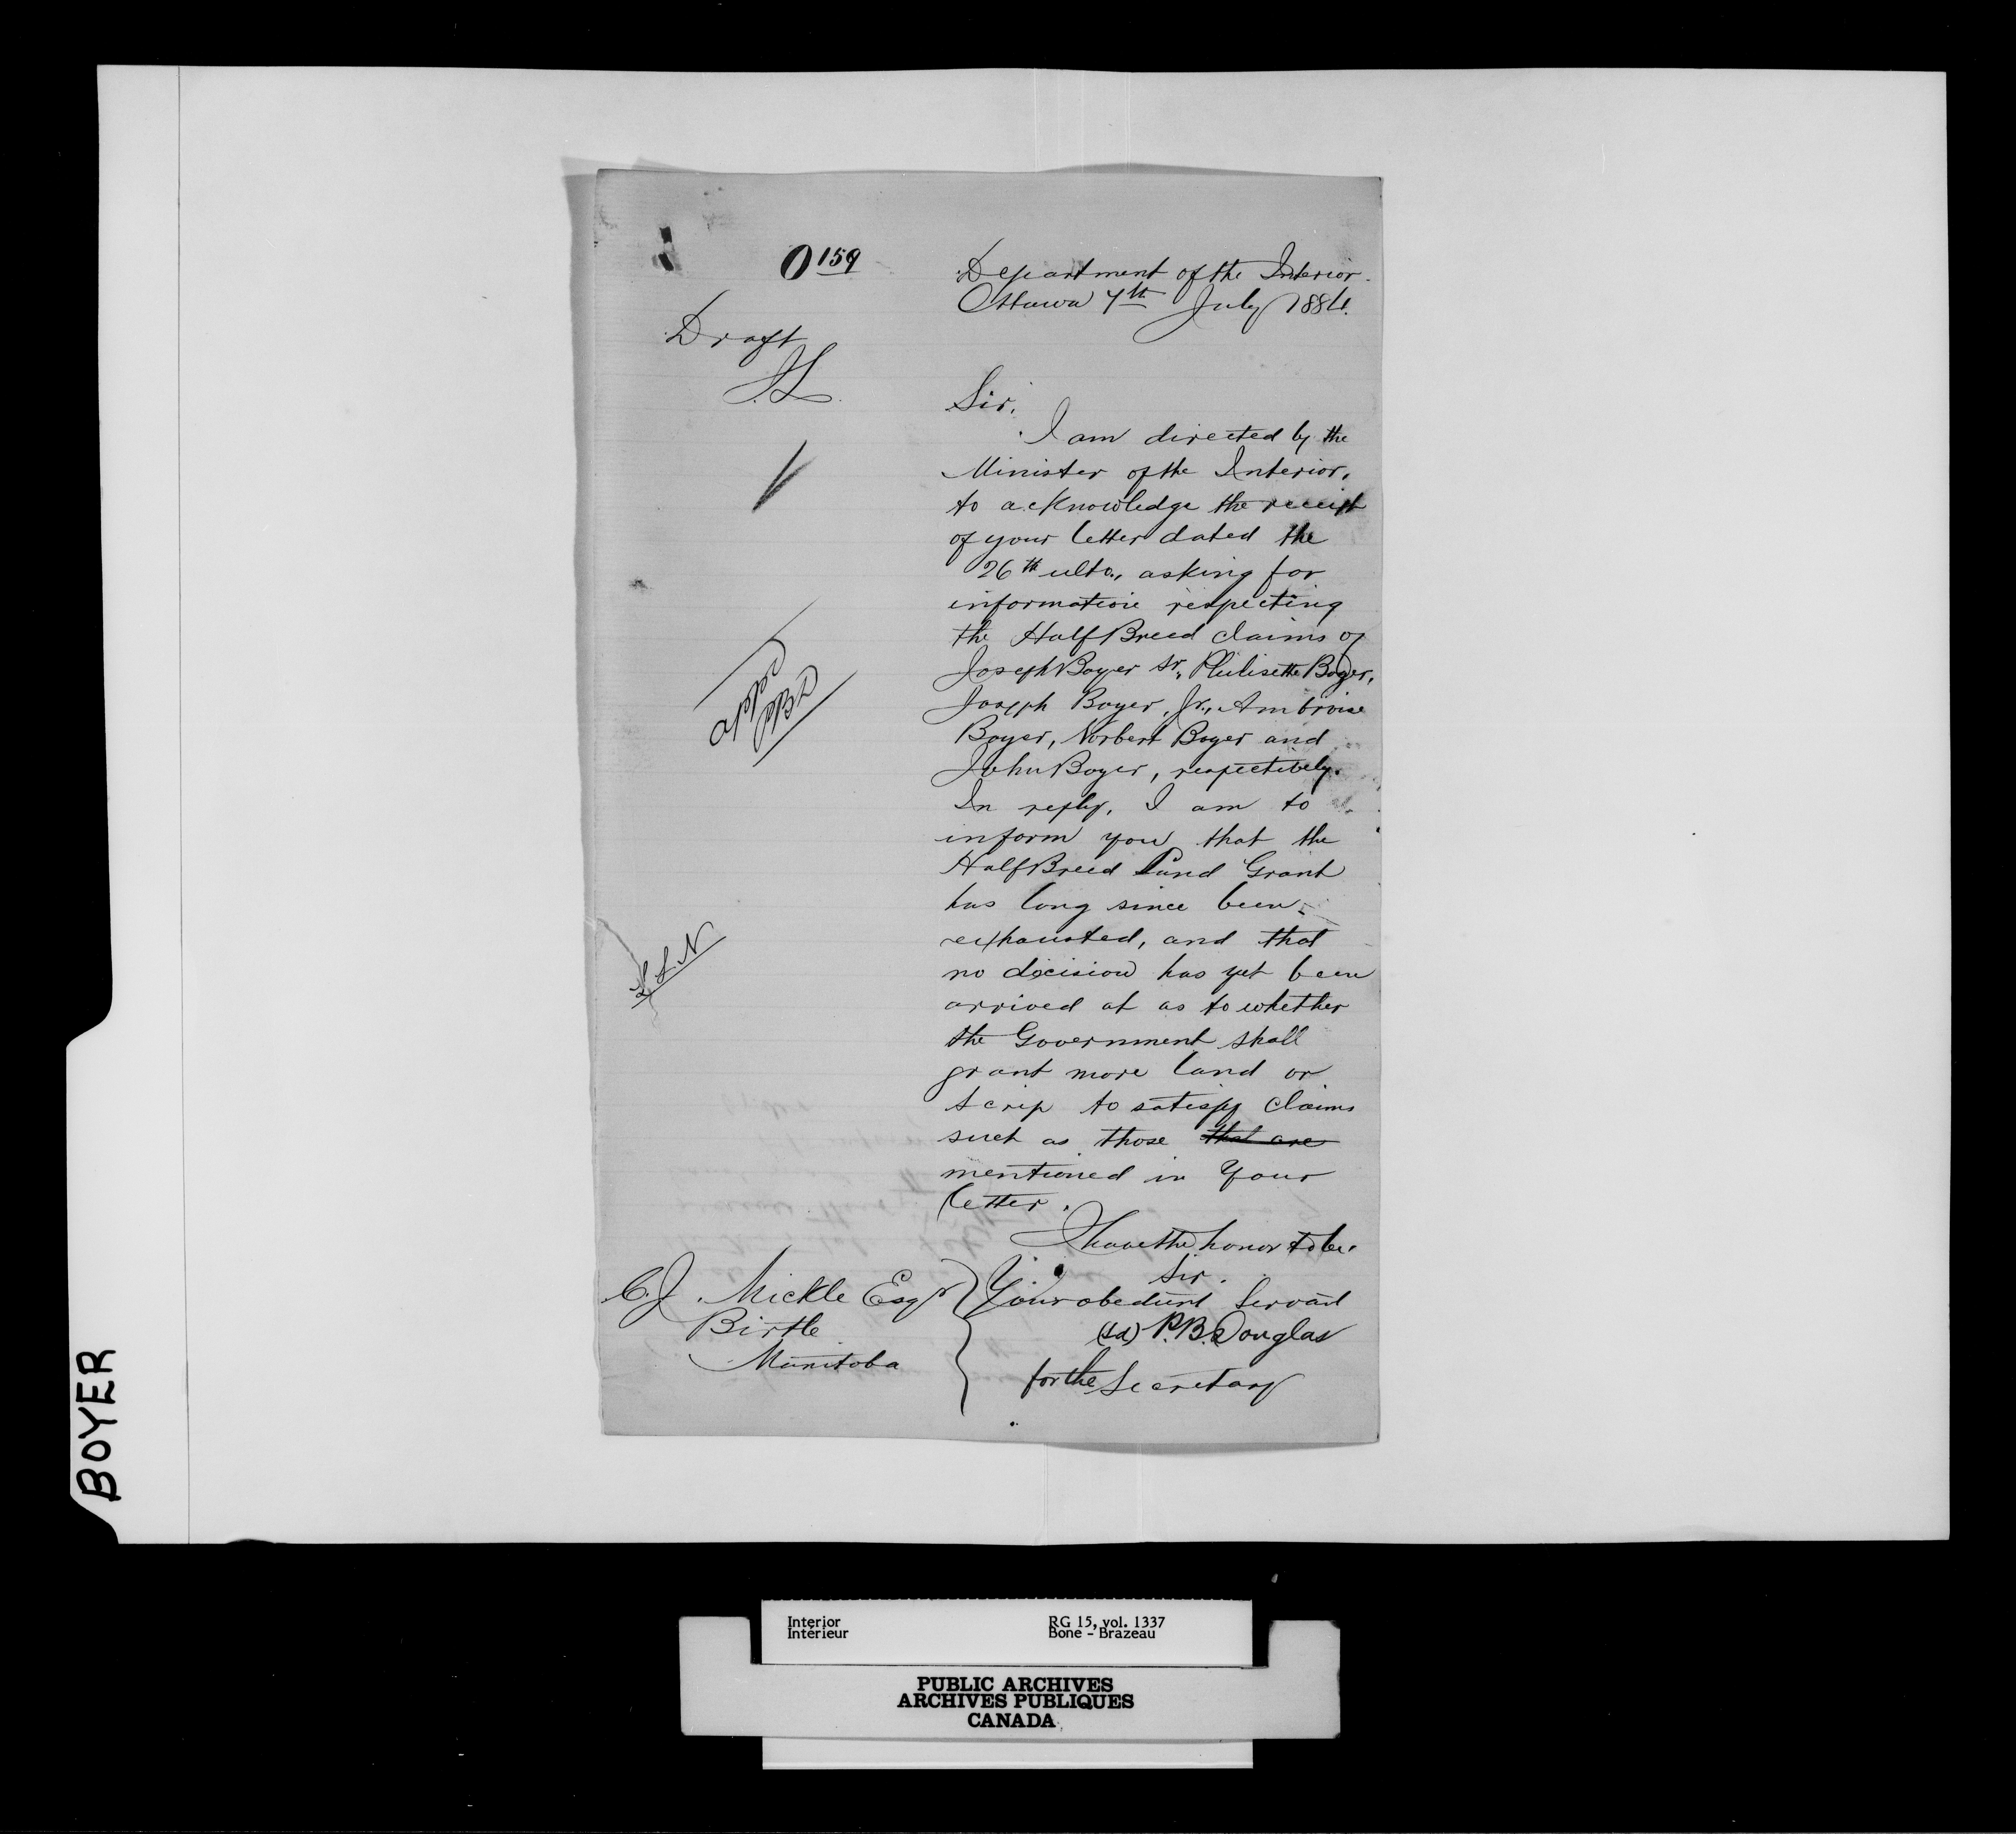 O 159
Department of the Interior.
Ottawa 7th July 1884.
Draft
J.L.
Sir,
I am directed by the
Minister of the Interior,
to acknowledge the receipt
of your letter dated the
26th ulto., asking for
information respecting
the Half Breed claims of
Joseph Boyer Sr., Philisette Boyer,
Joseph Boyer, Jr., Ambroise
Boyer, Norbert Boyer and
John Boyer, respectively.
In reply, I am to
inform you that the
Half Breed Land Grant
has long since been
exhausted, and that
no decision has yet been
arrived at as to whether
the Government shall
grant more land or
scrip to satisfy claims
such as those that are
mentioned in your
letter.
I have the honor to be.
Sir.
Your obedient Servant
(sd) P.B. Douglas
for the Secretary
appd
PBD
L.L.N
C.J. Mickle Esqr
Birtle
Manitoba
BOYER
Interior
Intérieur
RG 15, vol. 1337
Bone - Brazeau
PUBLIC ARCHIVES
ARCHIVES PUBLIQUES
CANADA